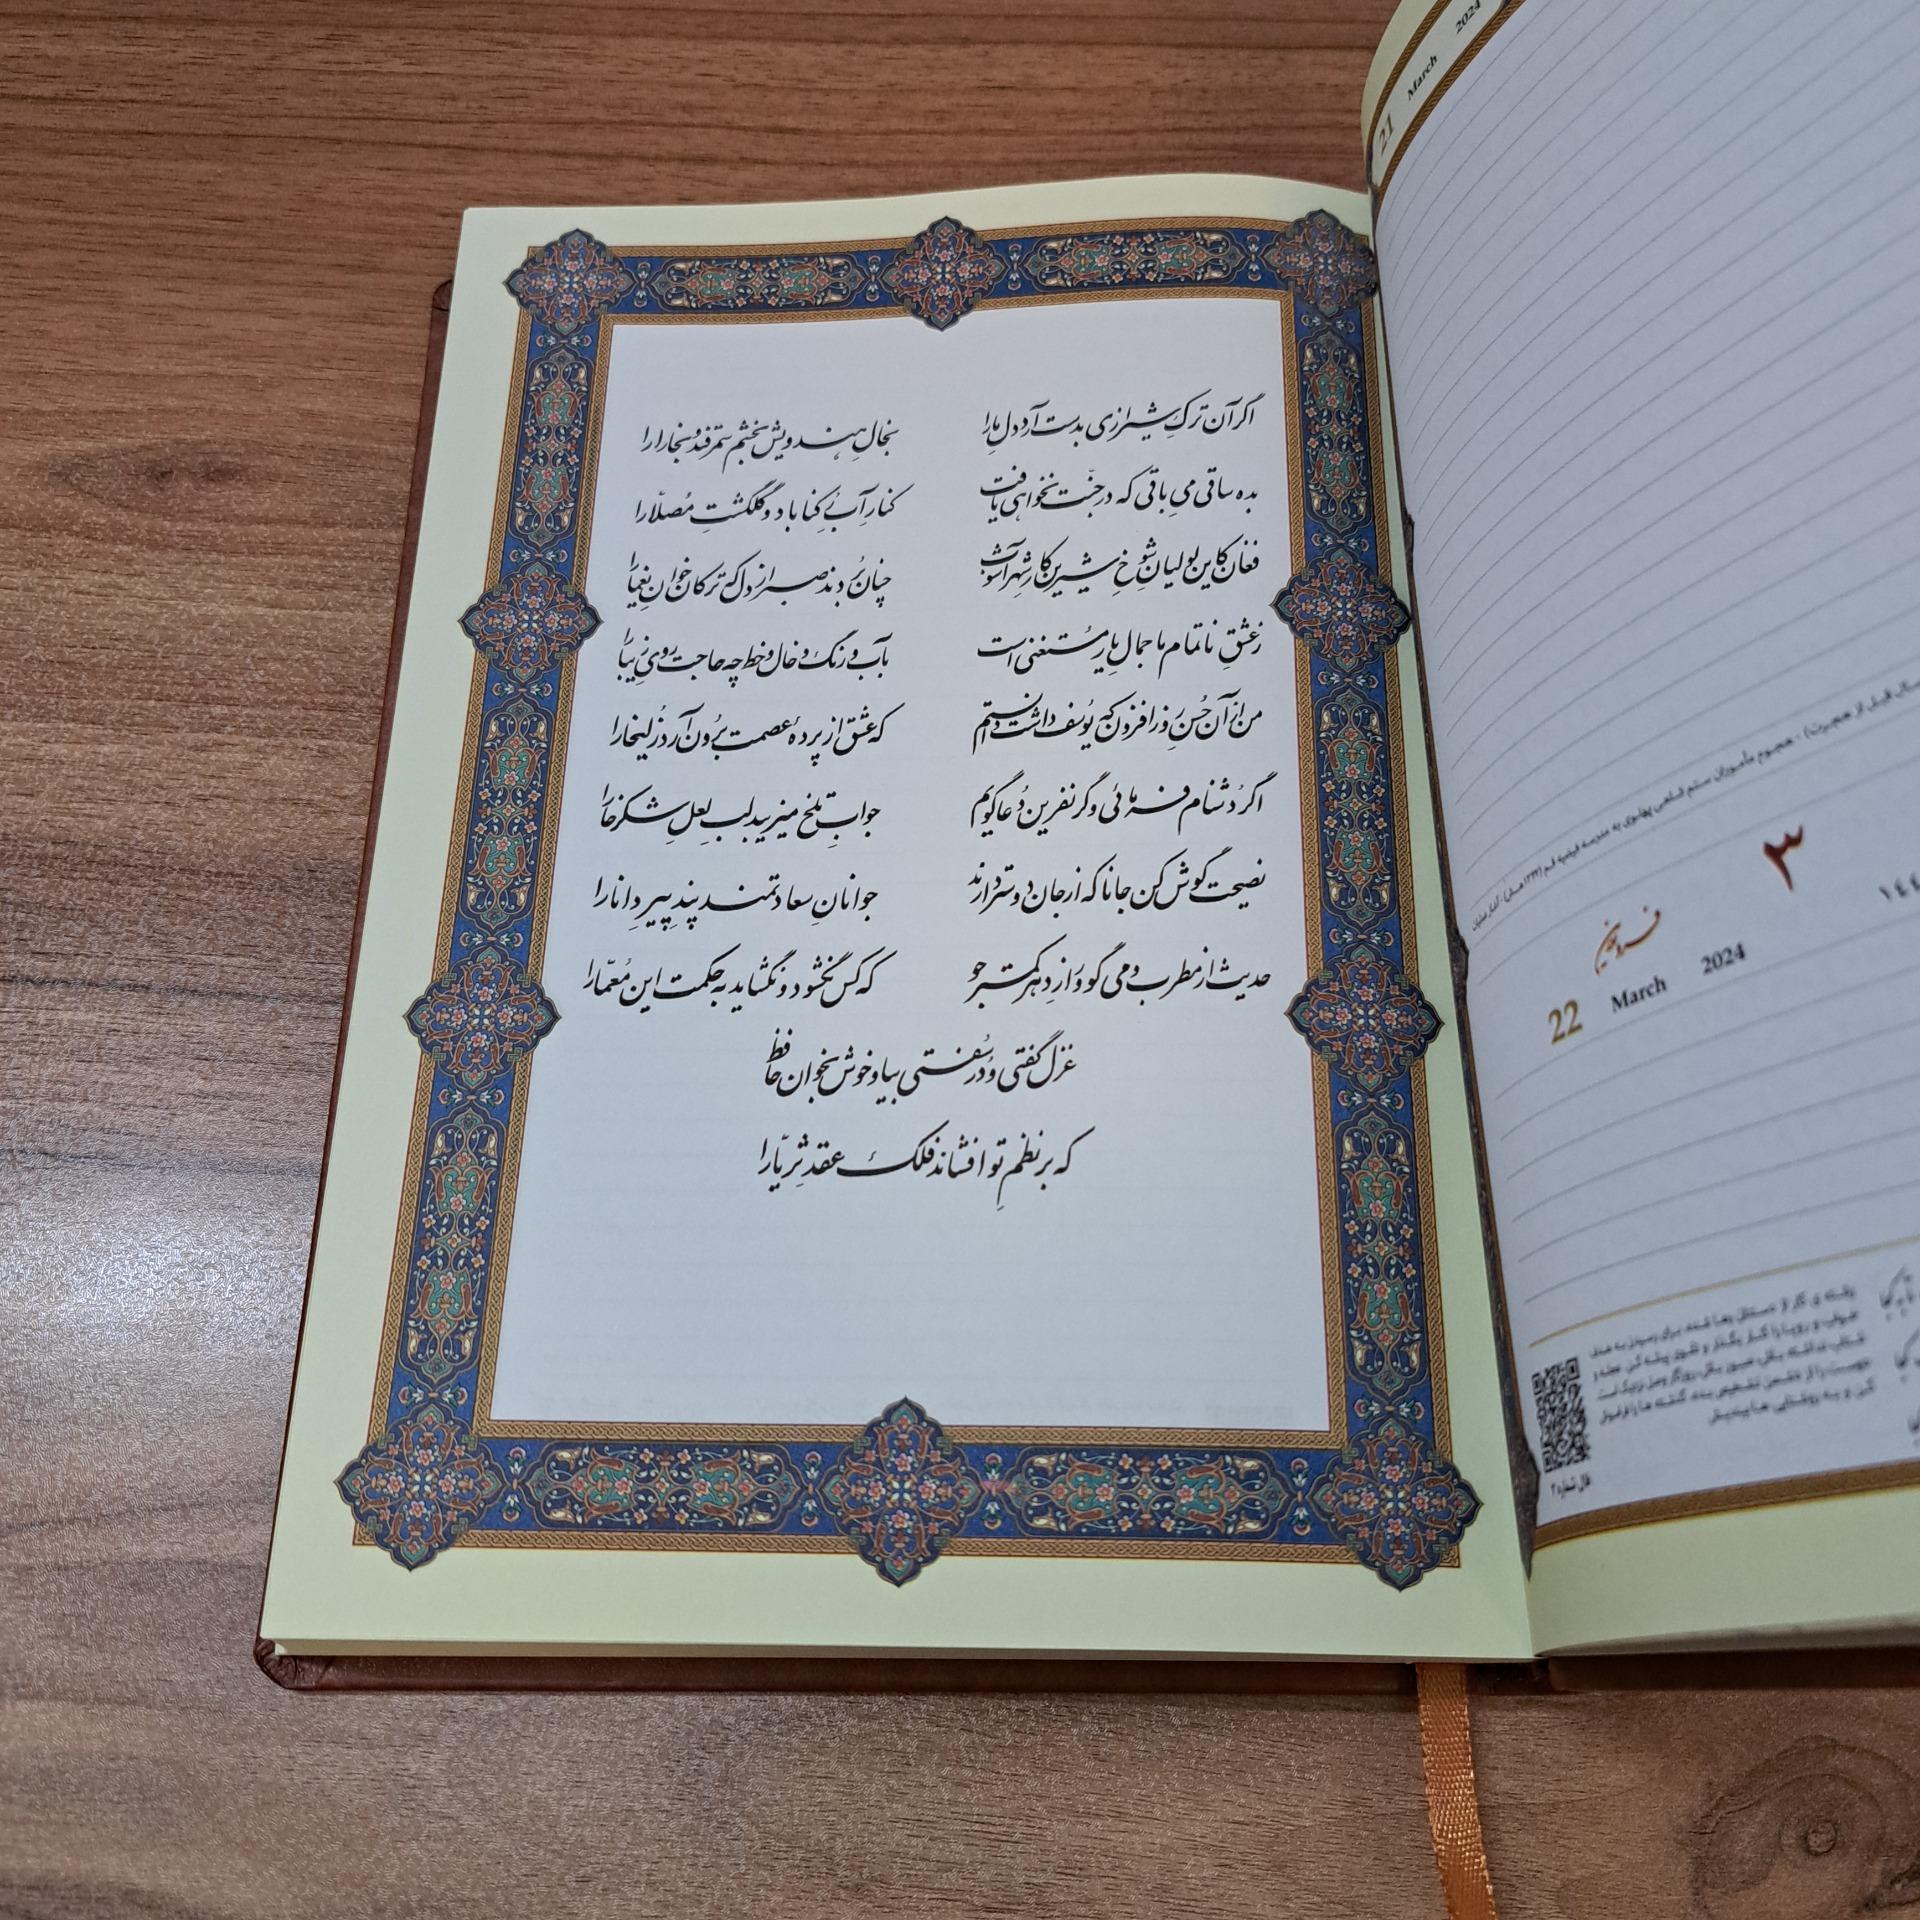 اگر آن ترکِ شیرازی بدست آرد دل ما را
بخالِ هندویش بخشم سمرقند و بخارا را
بده ساقی میِ باقی که در جنّت نخواهی یافت
کنارِ آبِ رکناباد و گلگشتِ مُصلّا را
فغان کاین لولیانِ شوخِ شیرین‌کارِ شهرآشوب
چنان بُردند صبر از دل که ترکان خوانِ یغما را
ز عشقِ ناتمامِ ما جمالِ یار مُستغنی است
بآب و رنگ و خال و خط چه حاجت رویِ زیبا را
من از آن حُسنِ روزافزون که یُوسف داشت دانستم
که عشق از پردهٔ عصمت بُرون آرد زُلیخا را
اگر دُشنام فرمائی وگر نفرین دُعا گویم
جوابِ تلخ میزیبد لبِ لعلِ شکرخا را
نصیحت گوش کن جانا که از جان دوستتر دارند
جوانانِ سعادتمند پندِ پیرِ دانا را
حدیث از مطرب و می گو و رازِ دهر کمتر جو
که کس نگشود و نگشاید به حکمت این مُعمّا را
غزل گفتی و دُر سُفتی بیا و خوش بخوان حافظ
که بر نظمِ تو افشاند فلک عقد ثریّا را
2024
March
21
هجوم مأموران ستم شاهی پهلوی به مدرسه فیضیه قم
۳
فروردین
22 March 2024
فال شماره ۲